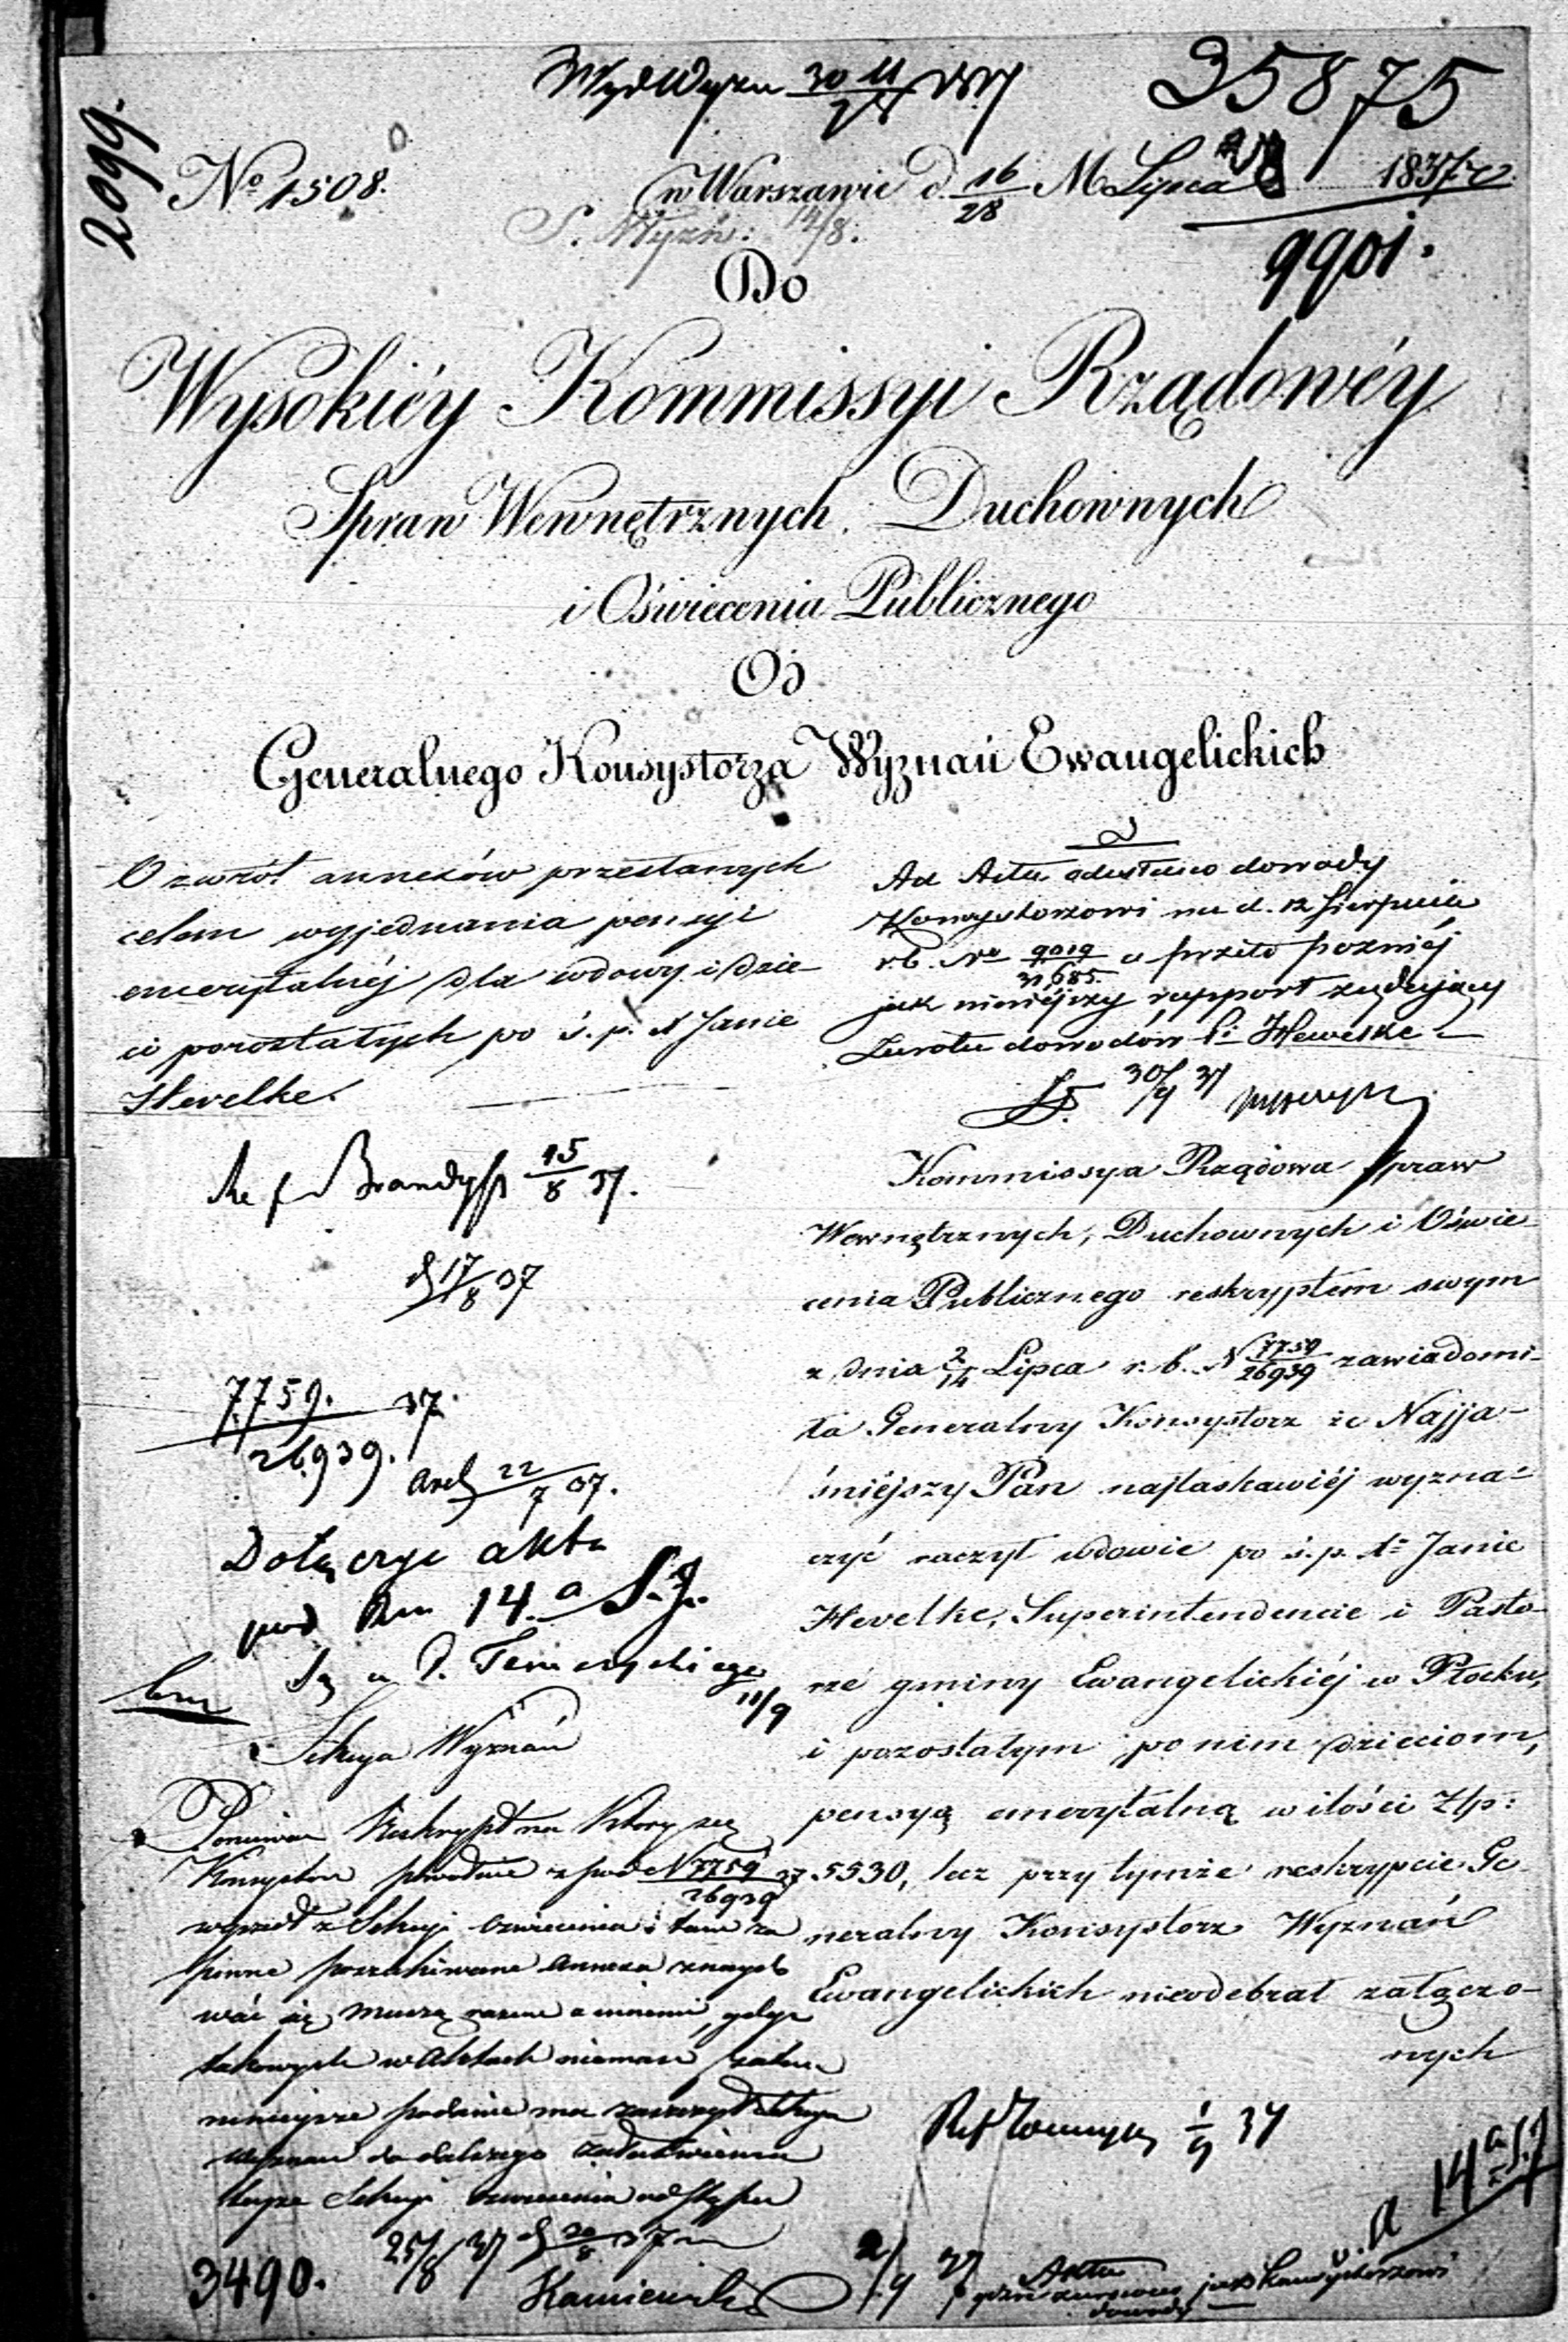 35875
2099.
No 1508.
w Warszawie d. 16/28 M Lipca 1837 r.
S. Wyzń: 14/8.
9901.
Do
Wysokiéy Kommissyi Rządowéy
Spraw Wewnętrznych, Duchownych
i Oświecenia Publicznego
Od
Generalnego Konsystorza Wyznań Ewangelickich
O zwrót annexów przesłanych
celem wyjednania pensyi
emerytalnéj dla wdowy i dzie-
ci pozostałych po ś. p. X Janie
Hevelke.
Ad Acta odesłano dowody
Konsystorzowi na d. 12 Sierpnia
r.b. No 9019/31,685. a przeto pozniéj
jak niniéjszy rapport żądający
Zwrotu dowodów
30/9 37
15/8 37.
17/8 37
7759./26939. 37.
22/7 37.
Dołączyć akta
pod 14.a
11/9
Sekcya Wyznań
Ponieważ Reskrypt na który się
Konsystorz powołuje z pod N 7759/26939 37
wyszedł z Sekcyi Oświecenia i tam za
pewne poszukiwane annexa znajdo
wać się muszą razem a minuta, gdyż
takowych w Aktach niemasz, zatem
niniejsze podanie ma zaszczyt Sekcya
Wyznań do dalszego załatwienia
tejże Sekcyi Oświecenia odstąpić
25/8 37
3490.
Kommissya Rządowa Spraw
Wewnętrznych, Duchownych i Oświe-
cenia Publicznego reskryptem swym
z dnia 2/14 Lipca r. b. N 7759/26939 zawiadomi-
ła Generalny Konsystorz że Najja-
śniéjszy Pan najłaskawiéj wyzna-
czyć raczył wdowie po ś. p. X Janie
Hevelke, Superintendencie i Pasto-
rze gminy Ewangelickiéj w Płocku,
i pozostałym po nim dzieciom,
pensyą emerytalną w ilości Złp:
5530, lecz przy tymże reskrypcie Ge-
neralny Konsystorz Wyznań
Ewangelickich nieodebrał załączo-
nych
1/9 37
14a
2/9 37
Akta
Konsystorzowi
dowody